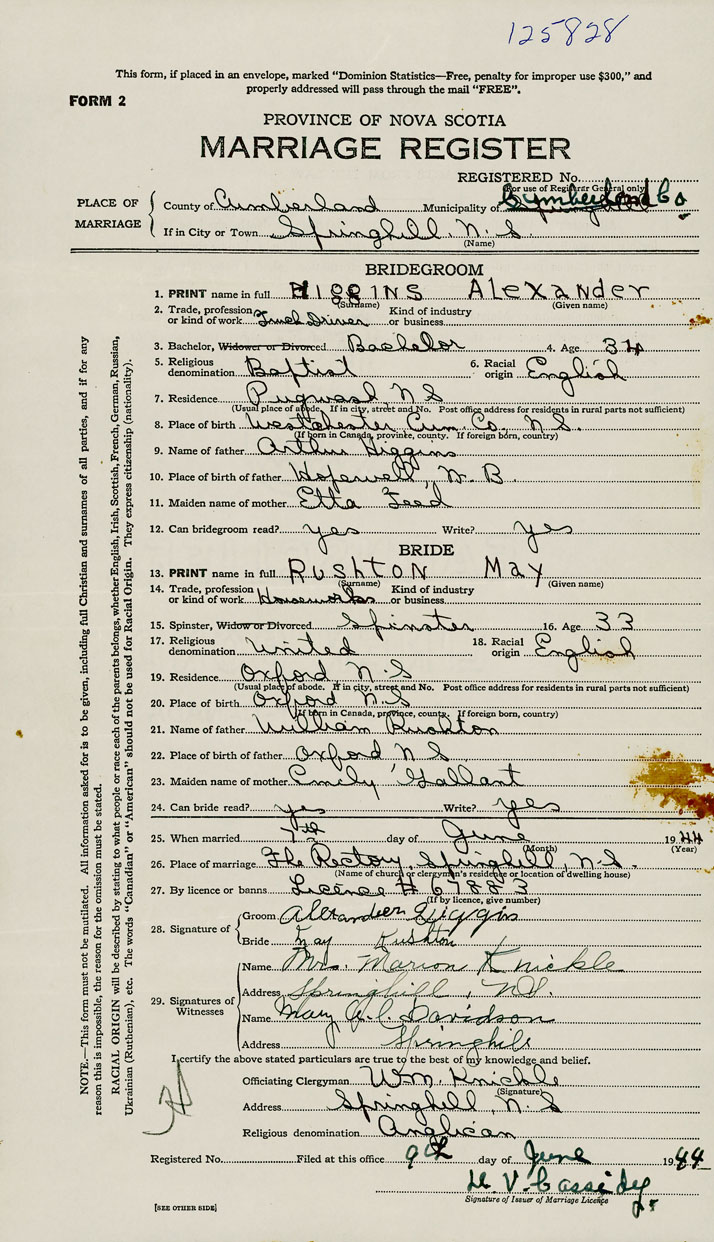 125828
This form, if placed in an envelope, marked "Dominion Statistics—Free, penalty for improper use $300," and
properly addressed will pass through the mail "FREE".
FORM 2
PROVINCE OF NOVA SCOTIA
MARRIAGE REGISTER
REGISTERED No.
(For use of Registrar General only)
PLACE OF MARRIAGE
County of Cumberland Municipality of Cumberland Co
If in City or Town Springhill, N.S
(Name)
BRIDEGROOM
1. PRINT name in full HIGGINS Alexander
(Surname) (Given name)
2. Trade, profession or kind of work Truck Driver Kind of industry or business
3. Bachelor, Widower or Divorced Bachelor 4. Age 34
5. Religious denomination Baptist 6. Racial origin English
7. Residence Pugwash N S
(Usual place of abode. If in city, street and No. Post office address for residents in rural parts not sufficient)
8. Place of birth Westchester Cum. Co., N.S.
(If born in Canada, province, county. If foreign born, country)
9. Name of father Arthur Higgins
10. Place of birth of father Hopewell, N. B.
11. Maiden name of mother Etta Teed
12. Can bridegroom read? yes Write? yes
BRIDE
13. PRINT name in full RUSHTON May
(Surname) (Given name)
14. Trade, profession or kind of work Houseworks Kind of industry or business
15. Spinster, Widow or Divorced Spinster 16. Age 33
17. Religious denomination United 18. Racial origin English
19. Residence Oxford N.S
(Usual place of abode. If in city, street and No. Post office address for residents in rural parts not sufficient)
20. Place of birth Oxford N.S
(If born in Canada, province, county. If foreign born, country)
21. Name of father William Rushton
22. Place of birth of father Oxford N S
23. Maiden name of mother Emily Gallant
24. Can bride read? yes Write? yes
25. When married 7th day of June 1944
(Month) (Year)
26. Place of marriage The Rectory, Springhill, N.S.
(Name of church or clergyman's residence or location of dwelling house)
27. By licence or banns License # 67883
(If by licence, give number)
28. Signature of
Groom Alexander Higgins
Bride May Rushton
29. Signatures of Witnesses
Name Mrs. Marion Knickle
Address Springhill, N.S.
Name Mary Davidson
Address Springhill
I certify the above stated particulars are true to the best of my knowledge and belief.
Officiating Clergyman Wm. Knickle
(Signature)
Address Springhill, N.S
Religious denomination Anglican
Registered No. Filed at this office 9th day of June 1944
H. V. Cassidy
Signature of Issuer of Marriage Licence
[SEE OTHER SIDE]
NOTE.—This form must not be mutilated. All information asked for is to be given, including full Christian and surnames of all parties, and if for any
reason this is impossible, the reason for the omission must be stated.
RACIAL ORIGIN will be described by stating to what people or race each of the parents belongs, whether English, Irish, Scottish, French, German, Russian,
Ukrainian (Ruthenian), etc. The words "Canadian" or "American" should not be used for Racial Origin. They express citizenship (nationality).